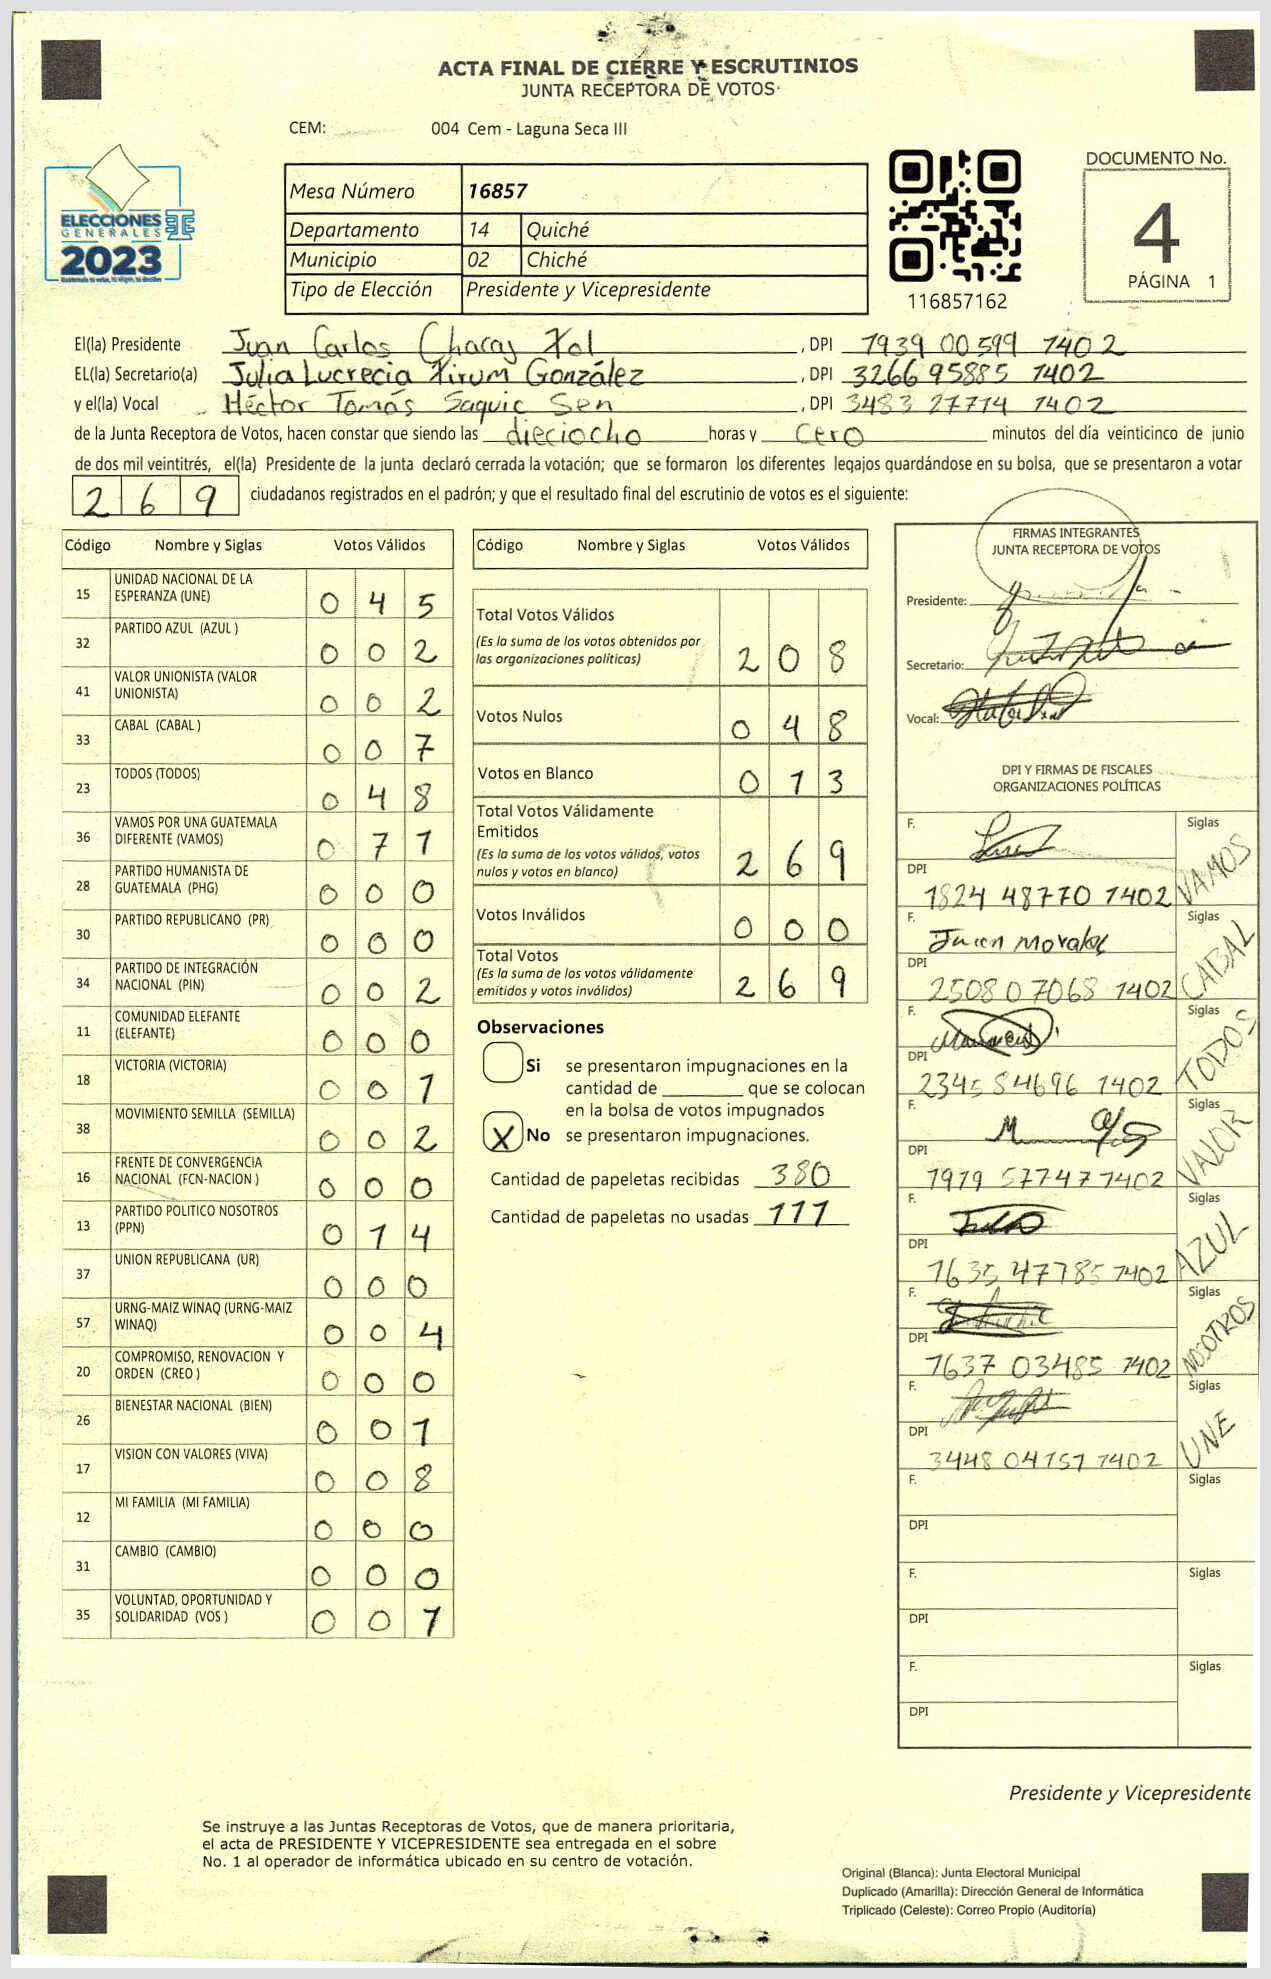 ACTA FINAL DE CIERRE Y ESCRUTINIOS
JUNTA RECEPTORA DE VOTOS
CEM: 004 Cem - Laguna Seca III
ELECCIONES
GENERALES
2023
Mesa Número 16857
Departamento 14 Quiché
Municipio 02 Chiché
Tipo de Elección Presidente y Vicepresidente
116857162
DOCUMENTO No.
4
PÁGINA 1
El(la) Presidente Juan Carlos Chacaj Xol, DPI 1939 00599 1402
EL(la) Secretario(a) Julia Lucrecia Xirum González, DPI 3266 95885 1402
y el(la) Vocal Héctor Tomás Saquic Sen, DPI 3483 27714 1402
de la Junta Receptora de Votos, hacen constar que siendo las dieciocho horas y cero minutos del día veinticinco de junio
de dos mil veintitrés, el(la) Presidente de la junta declaró cerrada la votación; que se formaron los diferentes legajos guardándose en su bolsa, que se presentaron a votar
269 ciudadanos registrados en el padrón; y que el resultado final del escrutinio de votos es el siguiente:
Código Nombre y Siglas Votos Válidos
15 UNIDAD NACIONAL DE LA ESPERANZA (UNE) 0 4 5
32 PARTIDO AZUL (AZUL ) 0 0 2
41 VALOR UNIONISTA (VALOR UNIONISTA) 0 0 2
33 CABAL (CABAL ) 0 0 7
23 TODOS (TODOS) 0 4 8
36 VAMOS POR UNA GUATEMALA DIFERENTE (VAMOS) 0 7 1
28 PARTIDO HUMANISTA DE GUATEMALA (PHG) 0 0 0
30 PARTIDO REPUBLICANO (PR) 0 0 0
34 PARTIDO DE INTEGRACIÓN NACIONAL (PIN) 0 0 2
11 COMUNIDAD ELEFANTE (ELEFANTE) 0 0 0
18 VICTORIA (VICTORIA) 0 0 1
38 MOVIMIENTO SEMILLA (SEMILLA) 0 0 2
16 FRENTE DE CONVERGENCIA NACIONAL (FCN-NACION ) 0 0 0
13 PARTIDO POLITICO NOSOTROS (PPN) 0 1 4
37 UNION REPUBLICANA (UR) 0 0 0
57 URNG-MAIZ WINAQ (URNG-MAIZ WINAQ) 0 0 4
20 COMPROMISO, RENOVACION Y ORDEN (CREO ) 0 0 0
26 BIENESTAR NACIONAL (BIEN) 0 0 1
17 VISION CON VALORES (VIVA) 0 0 8
12 MI FAMILIA (MI FAMILIA) 0 0 0
31 CAMBIO (CAMBIO) 0 0 0
35 VOLUNTAD, OPORTUNIDAD Y SOLIDARIDAD (VOS ) 0 0 1
Código Nombre y Siglas Votos Válidos
Total Votos Válidos 2 0 8
(Es la suma de los votos obtenidos por
las organizaciones políticas)
Votos Nulos 0 4 8
Votos en Blanco 0 1 3
Total Votos Válidamente
Emitidos 2 6 9
(Es la suma de los votos válidos, votos
nulos y votos en blanco)
Votos Inválidos 0 0 0
Total Votos 2 6 9
(Es la suma de los votos válidamente
emitidos y votos inválidos)
Observaciones
Si se presentaron impugnaciones en la
cantidad de ________ que se colocan
en la bolsa de votos impugnados
X No se presentaron impugnaciones.
Cantidad de papeletas recibidas 380
Cantidad de papeletas no usadas 111
FIRMAS INTEGRANTES
JUNTA RECEPTORA DE VOTOS
Presidente:
Secretario:
Vocal:
DPI Y FIRMAS DE FISCALES
ORGANIZACIONES POLÍTICAS
F. Siglas VAMOS
DPI 1824 48770 1402
F. Juan Morales Siglas CABAL
DPI 2508 07068 1402
F. Siglas TODOS
DPI 2345 84696 1402
F. Siglas VALOR
DPI 1979 57747 1402
F. Siglas AZUL
DPI 1635 47785 1402
F. Siglas NOSOTROS
DPI 1637 03485 1402
F. Siglas UNE
DPI 3448 04757 1402
F. Siglas
DPI
F. Siglas
DPI
F. Siglas
DPI
Presidente y Vicepresidente
Se instruye a las Juntas Receptoras de Votos, que de manera prioritaria,
el acta de PRESIDENTE Y VICEPRESIDENTE sea entregada en el sobre
No. 1 al operador de informática ubicado en su centro de votación.
Original (Blanca): Junta Electoral Municipal
Duplicado (Amarilla): Dirección General de Informática
Triplicado (Celeste): Correo Propio (Auditoría)